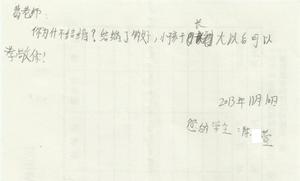 葛老师:
你为什不结婚?结婚了你好,小孩子长大以后可以
孝敬你!
2013年11月10日
您的学生:陈 萱